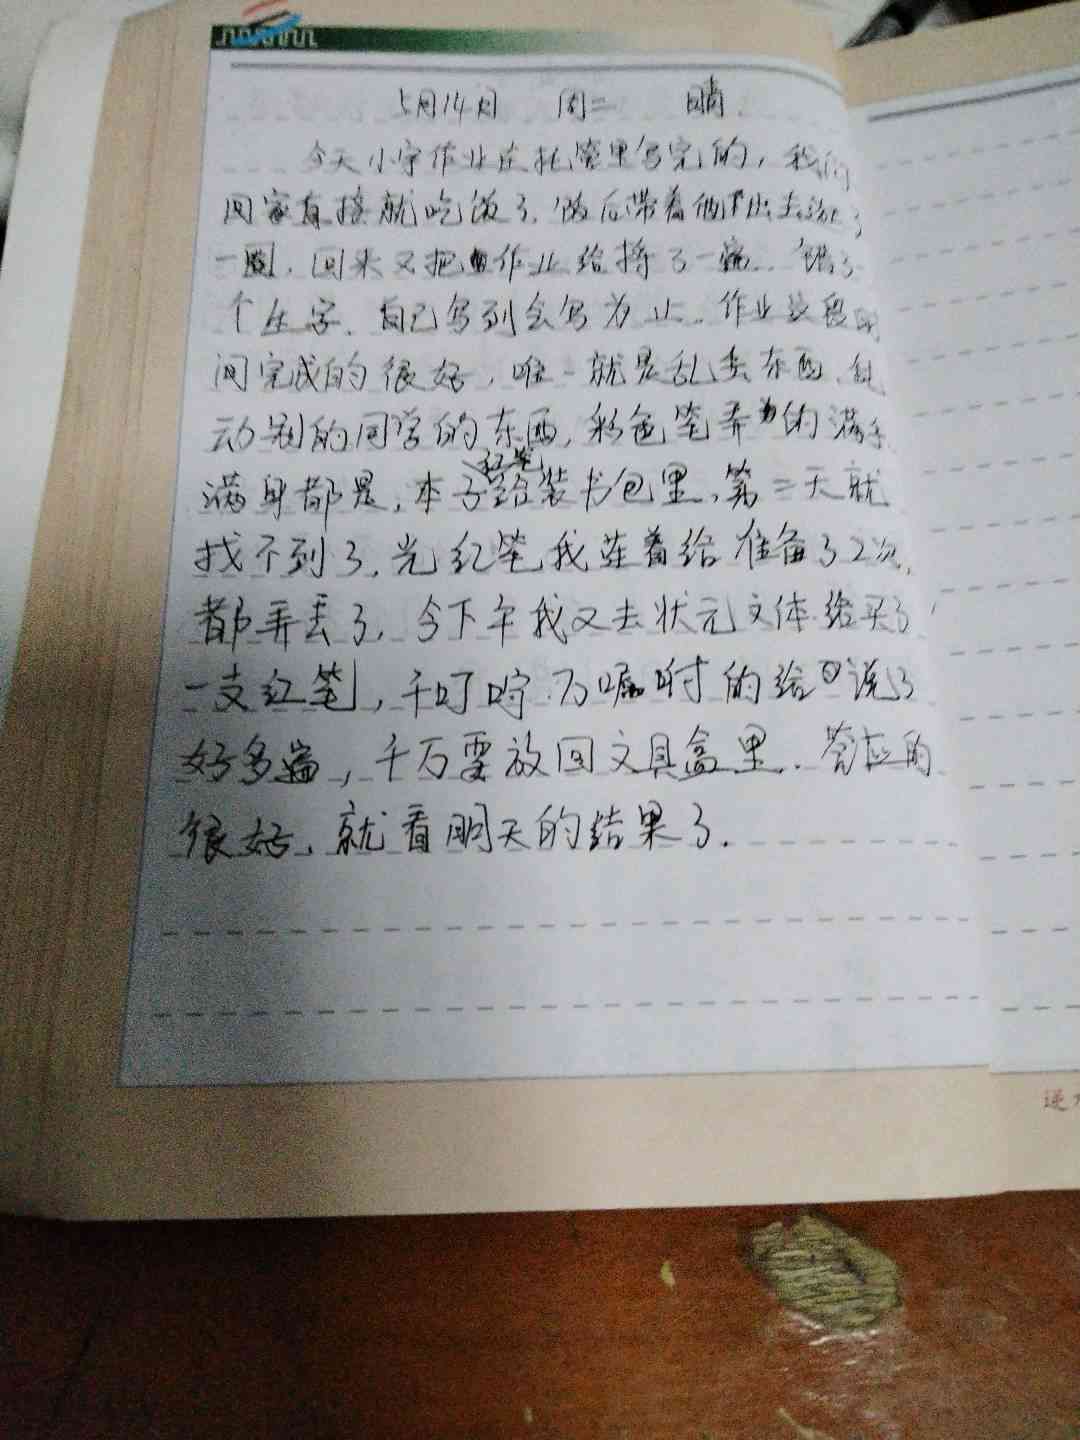 5月14日 周二 晴.
今天小宇作业在托管里写完的，我们
回家直接就吃饭了.饭后带着他下出去
一圈.回来又把作业给捋了一遍.错了
个生字.自己写到会写为止.作业这段时
间完成的很好,唯一就是乱丢东西.乱
动别的同学的东西,彩色笔弄的满手
满身都是,本子红笔给装书包里,第二天就
找不到了,光红笔我连着给准备了2次,
都弄丢了,今下午我又去状元文体给买了
一支红笔,千叮咛.万嘱咐的给说了
好多遍,千万要放回文具盒里.答应的
很好,就看明天的结果了.